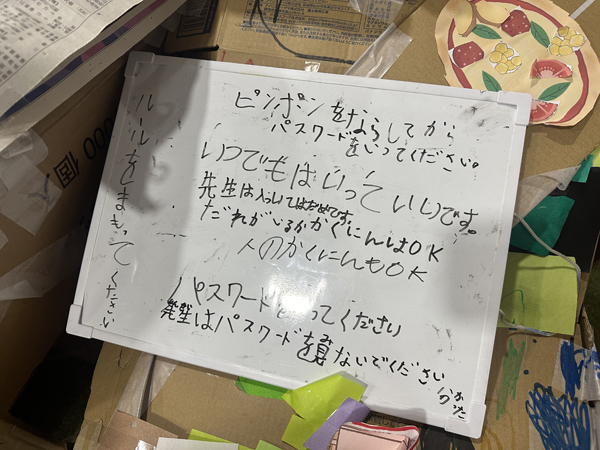 ピンポンをならしてから
パスワードをいってください。
いつでもはいっていいです。
先生は入らいてはだめです。
だれがいるかかくにんはOK
人のかくにんもOK
パスワード いってください
先生はパスワードを見ないでください
分かった
ルールをしまもってください
000 個入